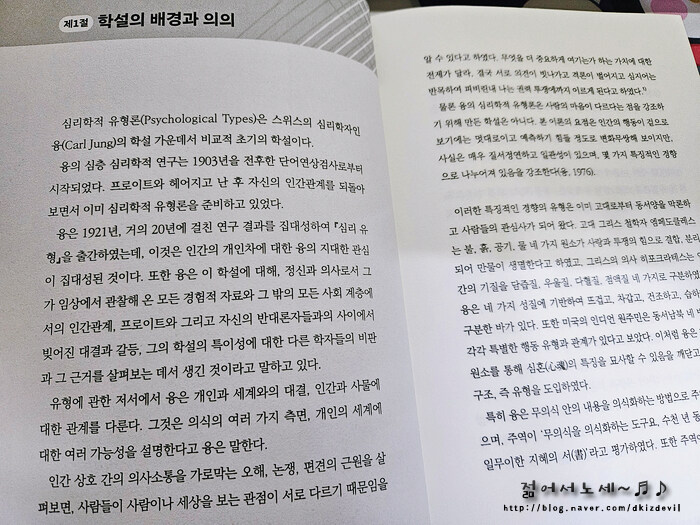 제1절 학설의 배경과 의의
심리학적 유형론(Psychological Types)은 스위스의 심리학자인
융(Carl Jung)의 학설 가운데서 비교적 초기의 학설이다.
융의 심층 심리학적 연구는 1903년을 전후한 단어연상검사로부터
시작되었다. 프로이트와 헤어지고 난 후 자신의 인간관계를 되돌아
보면서 이미 심리학적 유형론을 준비하고 있었다.
융은 1921년, 거의 20년에 걸친 연구 결과를 집대성하여 『심리 유
형』을 출간하였는데, 이것은 인간의 개인차에 대한 융의 지대한 관심
이 집대성된 것이다. 또한 융은 이 학설에 대해, 정신과 의사로서 그
가 임상에서 관찰해 온 모든 경험적 자료와 그 밖의 모든 사회 계층에
서의 인간관계, 프로이트와 그리고 자신의 반대론자들과의 사이에서
빚어진 대결과 갈등, 그의 학설의 특이성에 대한 다른 학자들의 비판
과 그 근거를 살펴보는 데서 생긴 것이라고 말하고 있다.
유형에 관한 저서에서 융은 개인과 세계와의 대결, 인간과 사물에
대한 관계를 다룬다. 그것은 의식의 여러 가지 측면, 개인의 세계에
대한 여러 가능성을 설명한다고 융은 말한다.
인간 상호 간의 의사소통을 가로막는 오해, 논쟁, 편견의 근원을 살
펴보면, 사람들이 사람이나 세상을 보는 관점이 서로 다르기 때문임을
알 수 있다고 하였다. 무엇을 더 중요하게 여기는가 하는 가치에 대한
전제가 달라, 결국 서로 의견이 빗나가고 격론이 벌어지고 심지어는
반목하여 피비린내 나는 권력 투쟁에까지 이르게 된다고 하였다.
물론 융의 심리학적 유형론은 사람의 마음이 다르다는 점을 강조하
기 위해 만든 학설은 아니다. 본 이론의 요점은 인간의 행동이 겉으로
보기에는 멋대로이고 예측하기 힘들 정도로 변화무쌍해 보이지만,
사실은 매우 질서정연하고 일관성이 있으며, 몇 가지 특징적인 경향
으로 나누어져 있음을 강조한다(융, 1976).
이러한 특징적인 경향의 유형은 이미 고대로부터 동서양을 막론하
고 사람들의 관심사가 되어 왔다. 고대 그리스 철학자 엠페도클레스
는 불, 흙, 공기, 물 네 가지 원소가 사랑과 투쟁의 힘으로 결합, 분리
되어 만물이 생멸한다고 하였고, 그리스의 의사 히포크라테스는 인
간의 기질을 담즙질, 우울질, 다혈질, 점액질 네 가지로 구분하였
융은 네 가지 성질에 기반하여 뜨겁고, 차갑고, 건조하고, 습하
구분한 바가 있다. 또한 미국의 인디언 원주민은 동서남북 네 방
각각 특별한 행동 유형과 관계가 있다고 보았다. 이처럼 융은
원소를 통해 심혼(心魂)의 특징을 묘사할 수 있음을 깨닫고
구조, 즉 유형을 도입하였다.
특히 융은 무의식 안의 내용을 의식화하는 방법으로 주
으며, 주역이 '무의식을 의식화하는 도구요, 수천 년 동
일무이한 지혜의 서(書)'라고 평가하였다. 또한 주역
젊어서노세~♬♪
http://blog.naver.com/dkizdevil